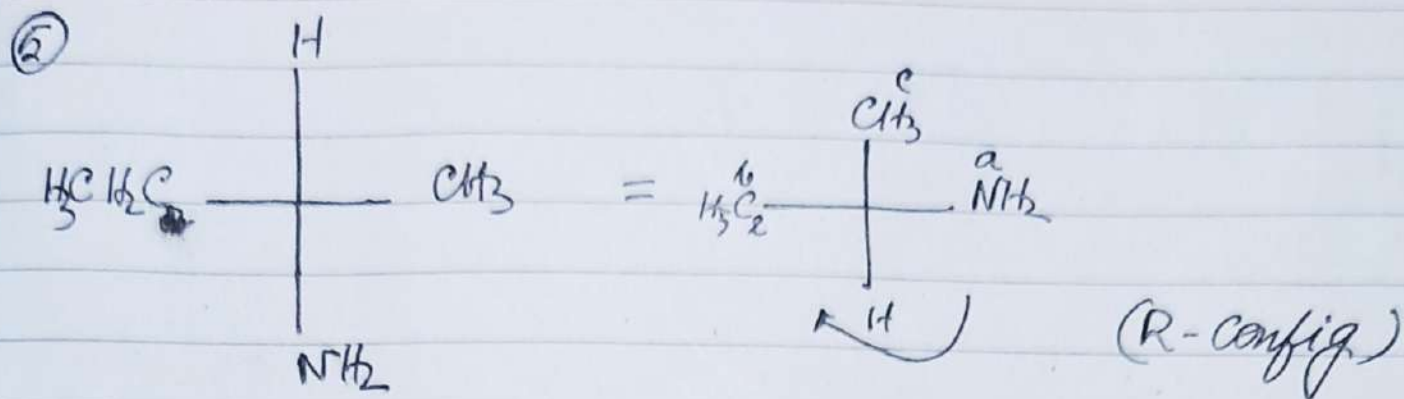 ⑤
H
H₃C H₂C CH₃
NH₂
=
c
CH₃
b a
H₃C₂ NH₂
H
(R-config)